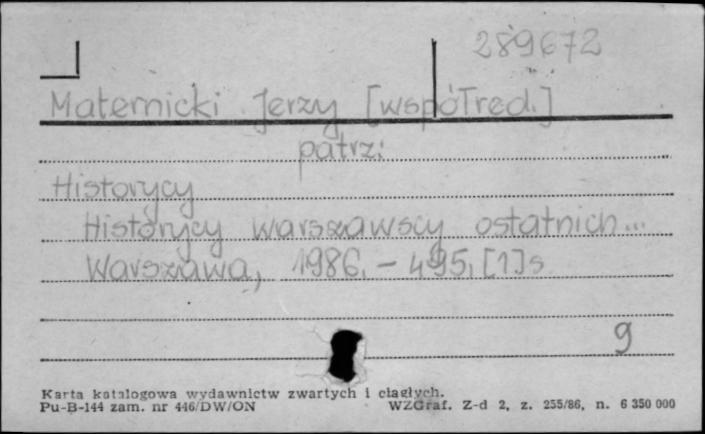 289672
Maternicki Jerzy [współred.]
patrz:
Historycy
Historycy warszawscy ostatnich...
Warszawa, 1986. - 495, [1] s.
9
Karta katalogowa wydawnictw zwartych i ciągłych.
Pu-B-144 zam. nr 446/DW/ON WZGraf. Z-d 2, z. 255/86, n. 6 350 000